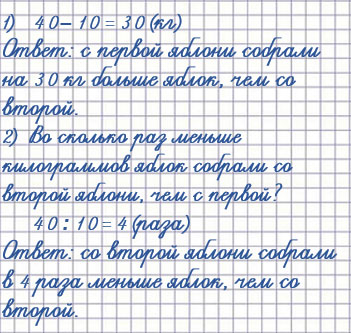 1) 40 – 10 = 30 (кг)
Ответ: с первой яблони собрали
на 30 кг больше яблок, чем со
второй.
2) Во сколько раз меньше
килограммов яблок собрали со
второй яблони, чем с первой?
40 : 10 = 4 (раза)
Ответ: со второй яблони собрали
в 4 раза меньше яблок, чем со
второй.